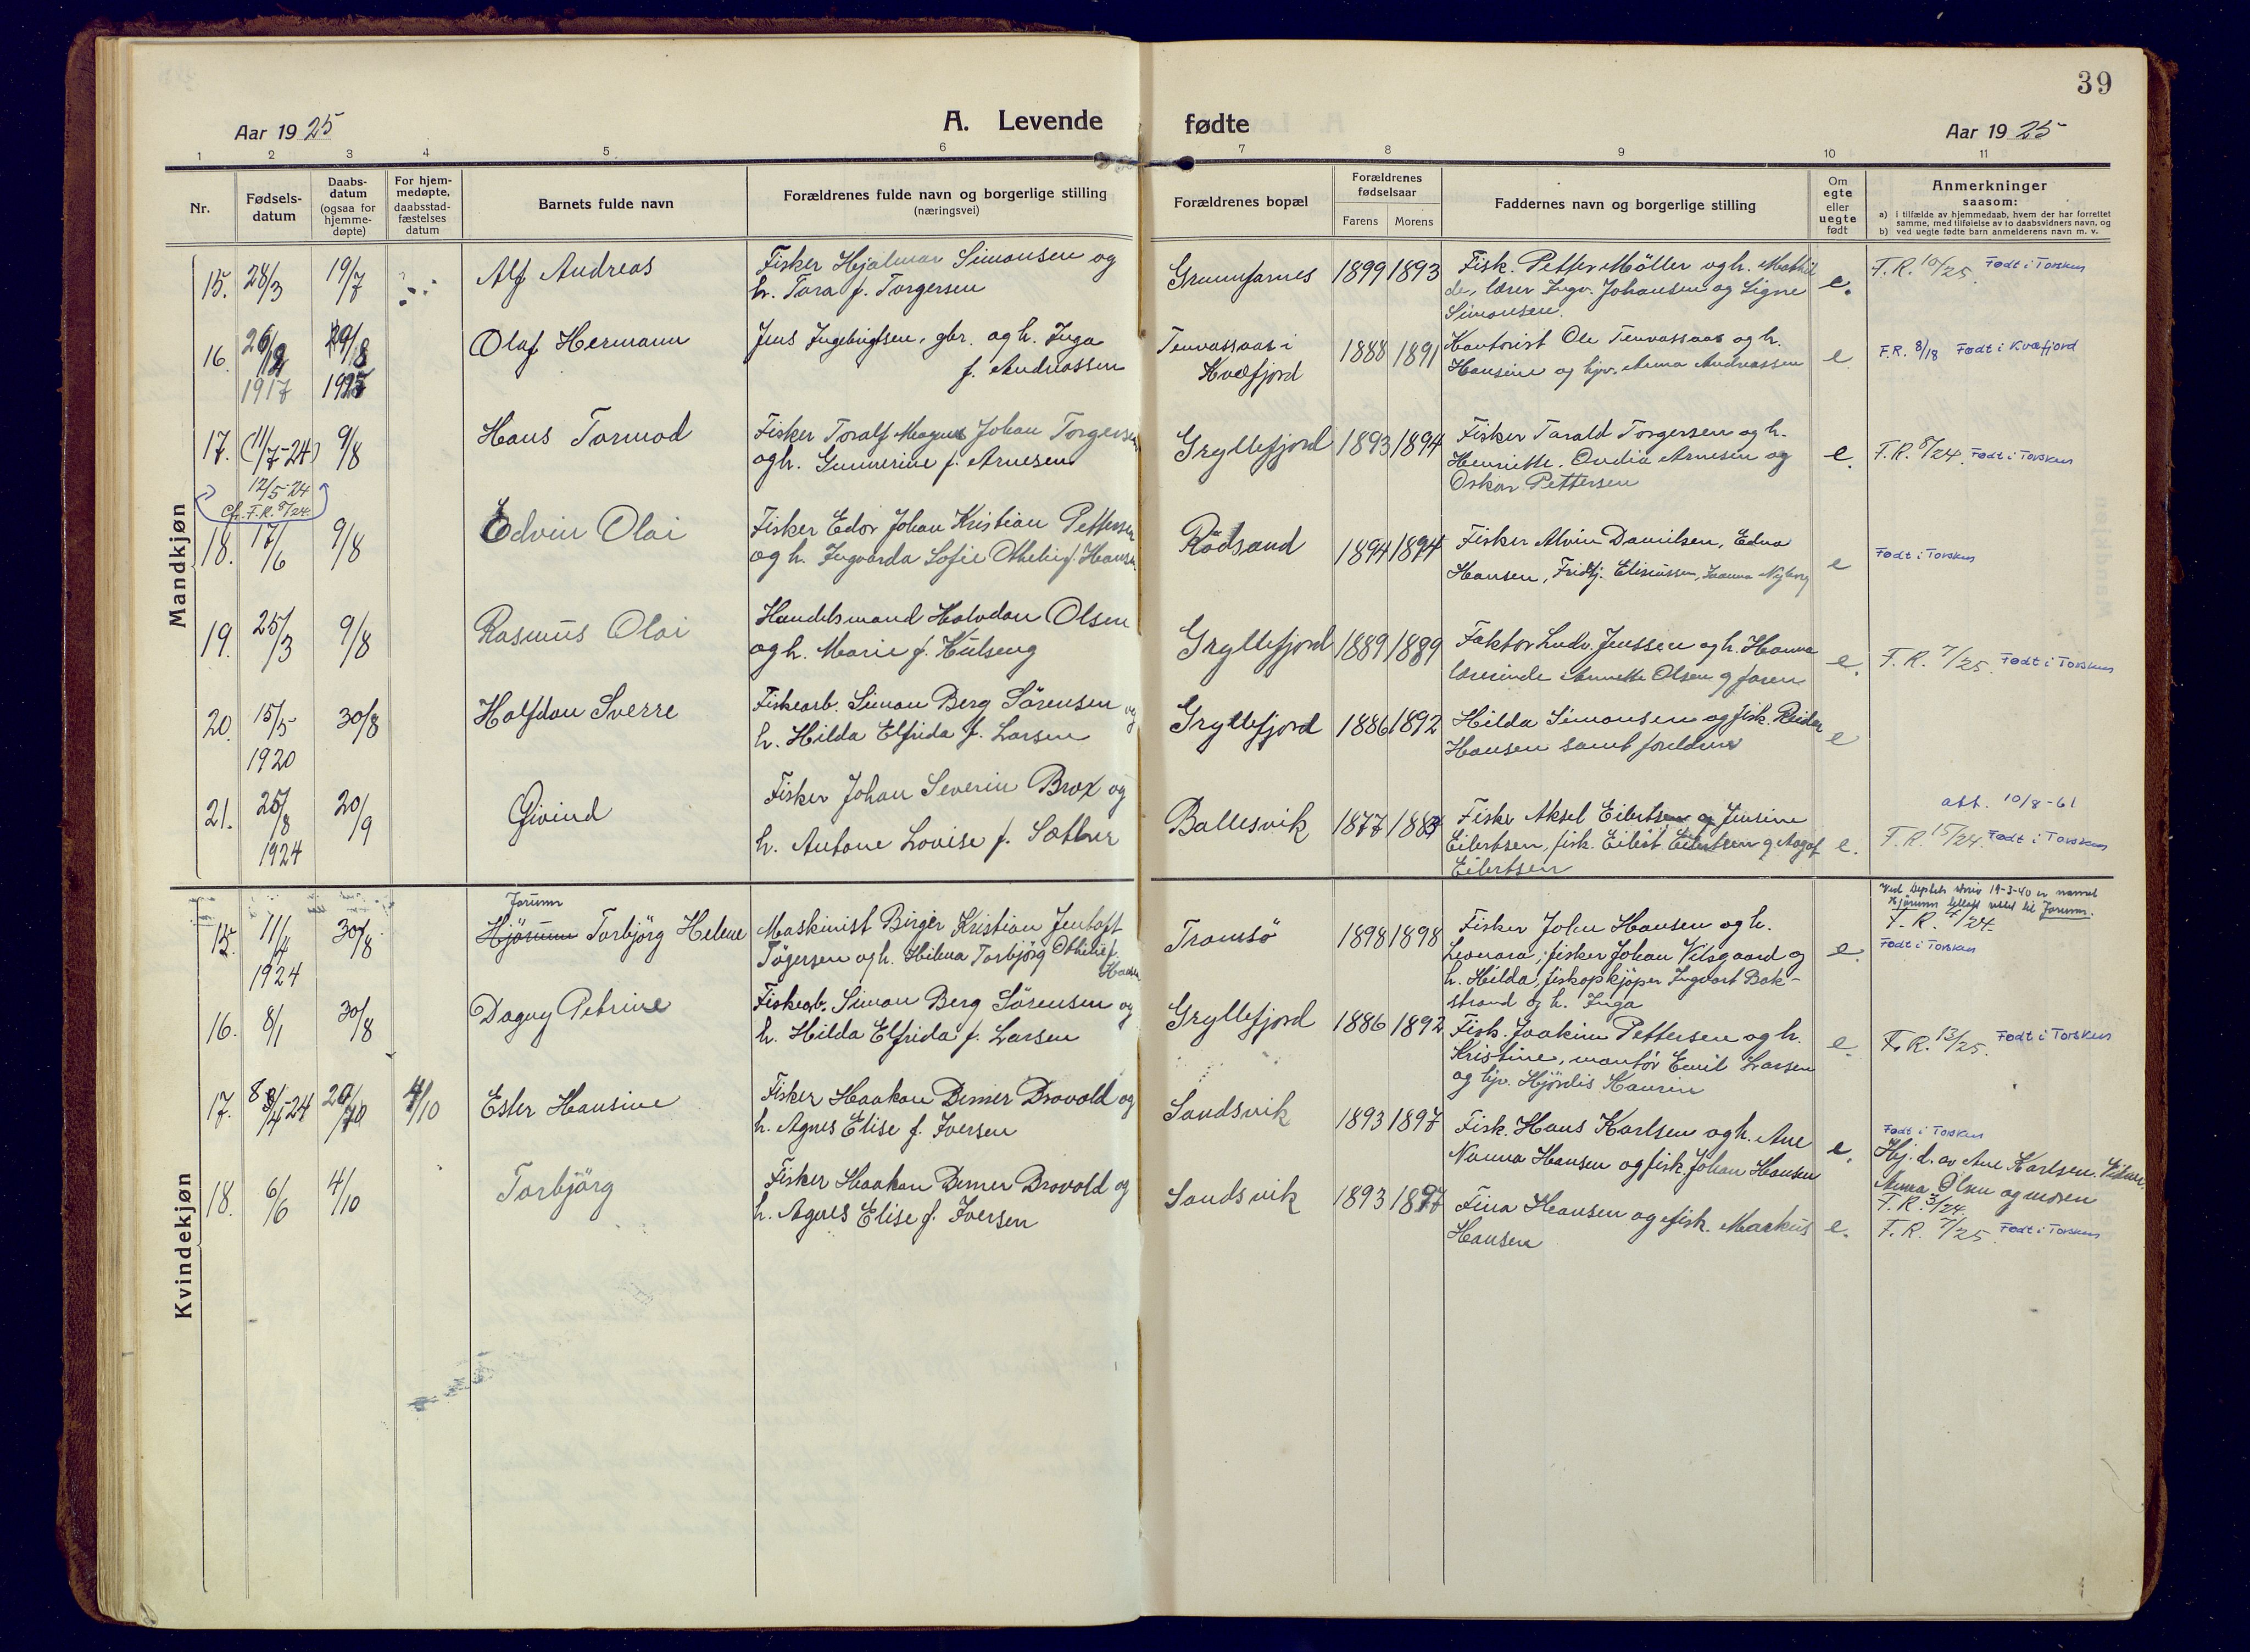 39
Aar 1925
A. Levende
fødte
Aar 1925
1 2 3 4 5 6 7 8 9 10 11
Nr.
Fødsels-
datum
Daabs-
datum
(ogsaa for
hjemme-
døpte)
For hjem-
medøpte,
daabsstad-
fæstelses
datum
Barnets fulde navn
Forældrenes fulde navn og borgerlige stilling
(næringsvei)
Forældrenes bopæl
Forældrenes
fødselsaar
Farens Morens
Faddernes navn og borgerlige stilling
Om
egte
eller
uegte
født
Anmerkninger
saasom:
a) i tilfælde av hjemmedaab, hvem der har forrettet
samme, med tilføielse av to daabsvidners navn, og
b) ved uegte fødte barn anmelderens navn m. v.
Mandkjøn
15. 28/3 19/7 Alf Andreas
Fisker Hjalmar Simonsen og
h. Tora f. Torgersen
Grunnfarnes 1899 1893
Fisk. Petter Möller og h. Mathil
de, lærer Ingv. Johansen og Signe
Simonsen.
e.
F.R. 10/25. Født i Torsken
16. 26/12 1917 29/8 1925 Olaf Hermann
Jens Ingebrigtsen, gbr. og h. Inga
f. Andreassen
Tenvassaas i
Kvæfjord
1888 1891
Kontorist Ole Tenvassaas og h.
Hansine og hjv. Anna Andreassen
e.
F.R. 8/18 Født i Kvæfjord
17. (11/7-24) 9/8 Hans Tormod
12/5-24
Cf. F.R. 8/24.
Fisker Toralf Magnus Johan Torgersen
og h. Gunnerine f. Arnesen
Gryllefjord 1893 1894
Fisker Tarald Torgersen og h.
Henriette, Ovidia Arnesen og
Oskar Pettersen
e.
F.R. 8/24. Født i Torsken
18. 17/6 9/8 Edvin Olai
Fisker Edor Johan Kristian Pettersen
og h. Ingvarda Sofie Othelie f. Hansen
Rödsand 1894 1894
Fisker Alvin Danilsen, Edna
Hansen, Fridtj. Eliseussen, Joanna Nyborg
e
Født i Torsken
19. 25/3 9/8 Rasmus Olai
Handelsmand Halvdan Olsen
og h. Marie f. Hulseng
Gryllefjord 1889 1889
Faktor Ludv. Jenssen og h. Hanna
lærerinde Annette Olsen og faren
e.
F.R. 7/25. Født i Torsken
20. 15/5 1920 30/8 Halfdan Sverre
Fiskearb. Simon Berg Sörensen og
h. Hilda Elfrida f. Larsen
Gryllefjord 1886 1892
Hilda Simonsen og fisk. Reidar
Hansen samt foreldrene
e
21. 25/8 1924 20/9 Øivind
Fisker Johan Severin Brox og
h. Antone Lovise f. Sætther
Ballesvik 1877 1883
Fisker Aksel Eilertsen og Jensine
Eilertsen, fisk. Eilert Eilertsen og Aagot
Eilertsen
e.
att. 10/8-61
F.R. 15/24. Født i Torsken
Kvindekjøn
Jorunn
15. 11/4 1924 30/8 Hjörunn Torbjörg Helene
Maskinist Birger Kristian Jentoft
Tögersen og h. Helena Torbjörg Othilie f.
Hansen
Tromsö 1898 1898
Fisker John Hansen og h.
Leonora; fisker Johan Vilsgaard og
h. Hilda, fiskopkjøper Ingvart Bak-
strand og h. Inga
e.
Ved Deptets skriv 19-3-40 er navnet
Hjørunn tillatt rettet til Jorunn.
F.R. 4/24.
Født i Torsken
16. 8/1 30/8 Dagny Petrine
Fiskearb. Simon Berg Sörensen og
h. Hilda Elfrida f. Larsen
Gryllefjord 1886 1892
Fisk. Joakim Pettersen og h.
Kristine, montör Emil Larsen
og hjv. Hjördis Kaurin
e.
F.R. 13/25. Født i Torsken
17. 8/4-24 20/10 4/10 Ester Hansine
Fisker Haakon Bemer Drovold og
h. Agnes Elise f. Iversen
Sandsvik 1893 1897
Fisk. Hans Karlsen og h. Ane
Nanna Hansen og fisk. Johan Hansen
e.
Født i Torsken
Hj.d. av Ane Karlsen. Vidner.
Anna Olsen og moren
F.R. 3/24.
18. 6/6 4/10 Torbjörg
Fisker Haakon Bemer Drovold og
h. Agnes Elise f. Iversen
Sandsvik 1893 1897
Fina Hansen og fisk. Markus
Hansen
e.
F.R. 7/25. Født i Torsken